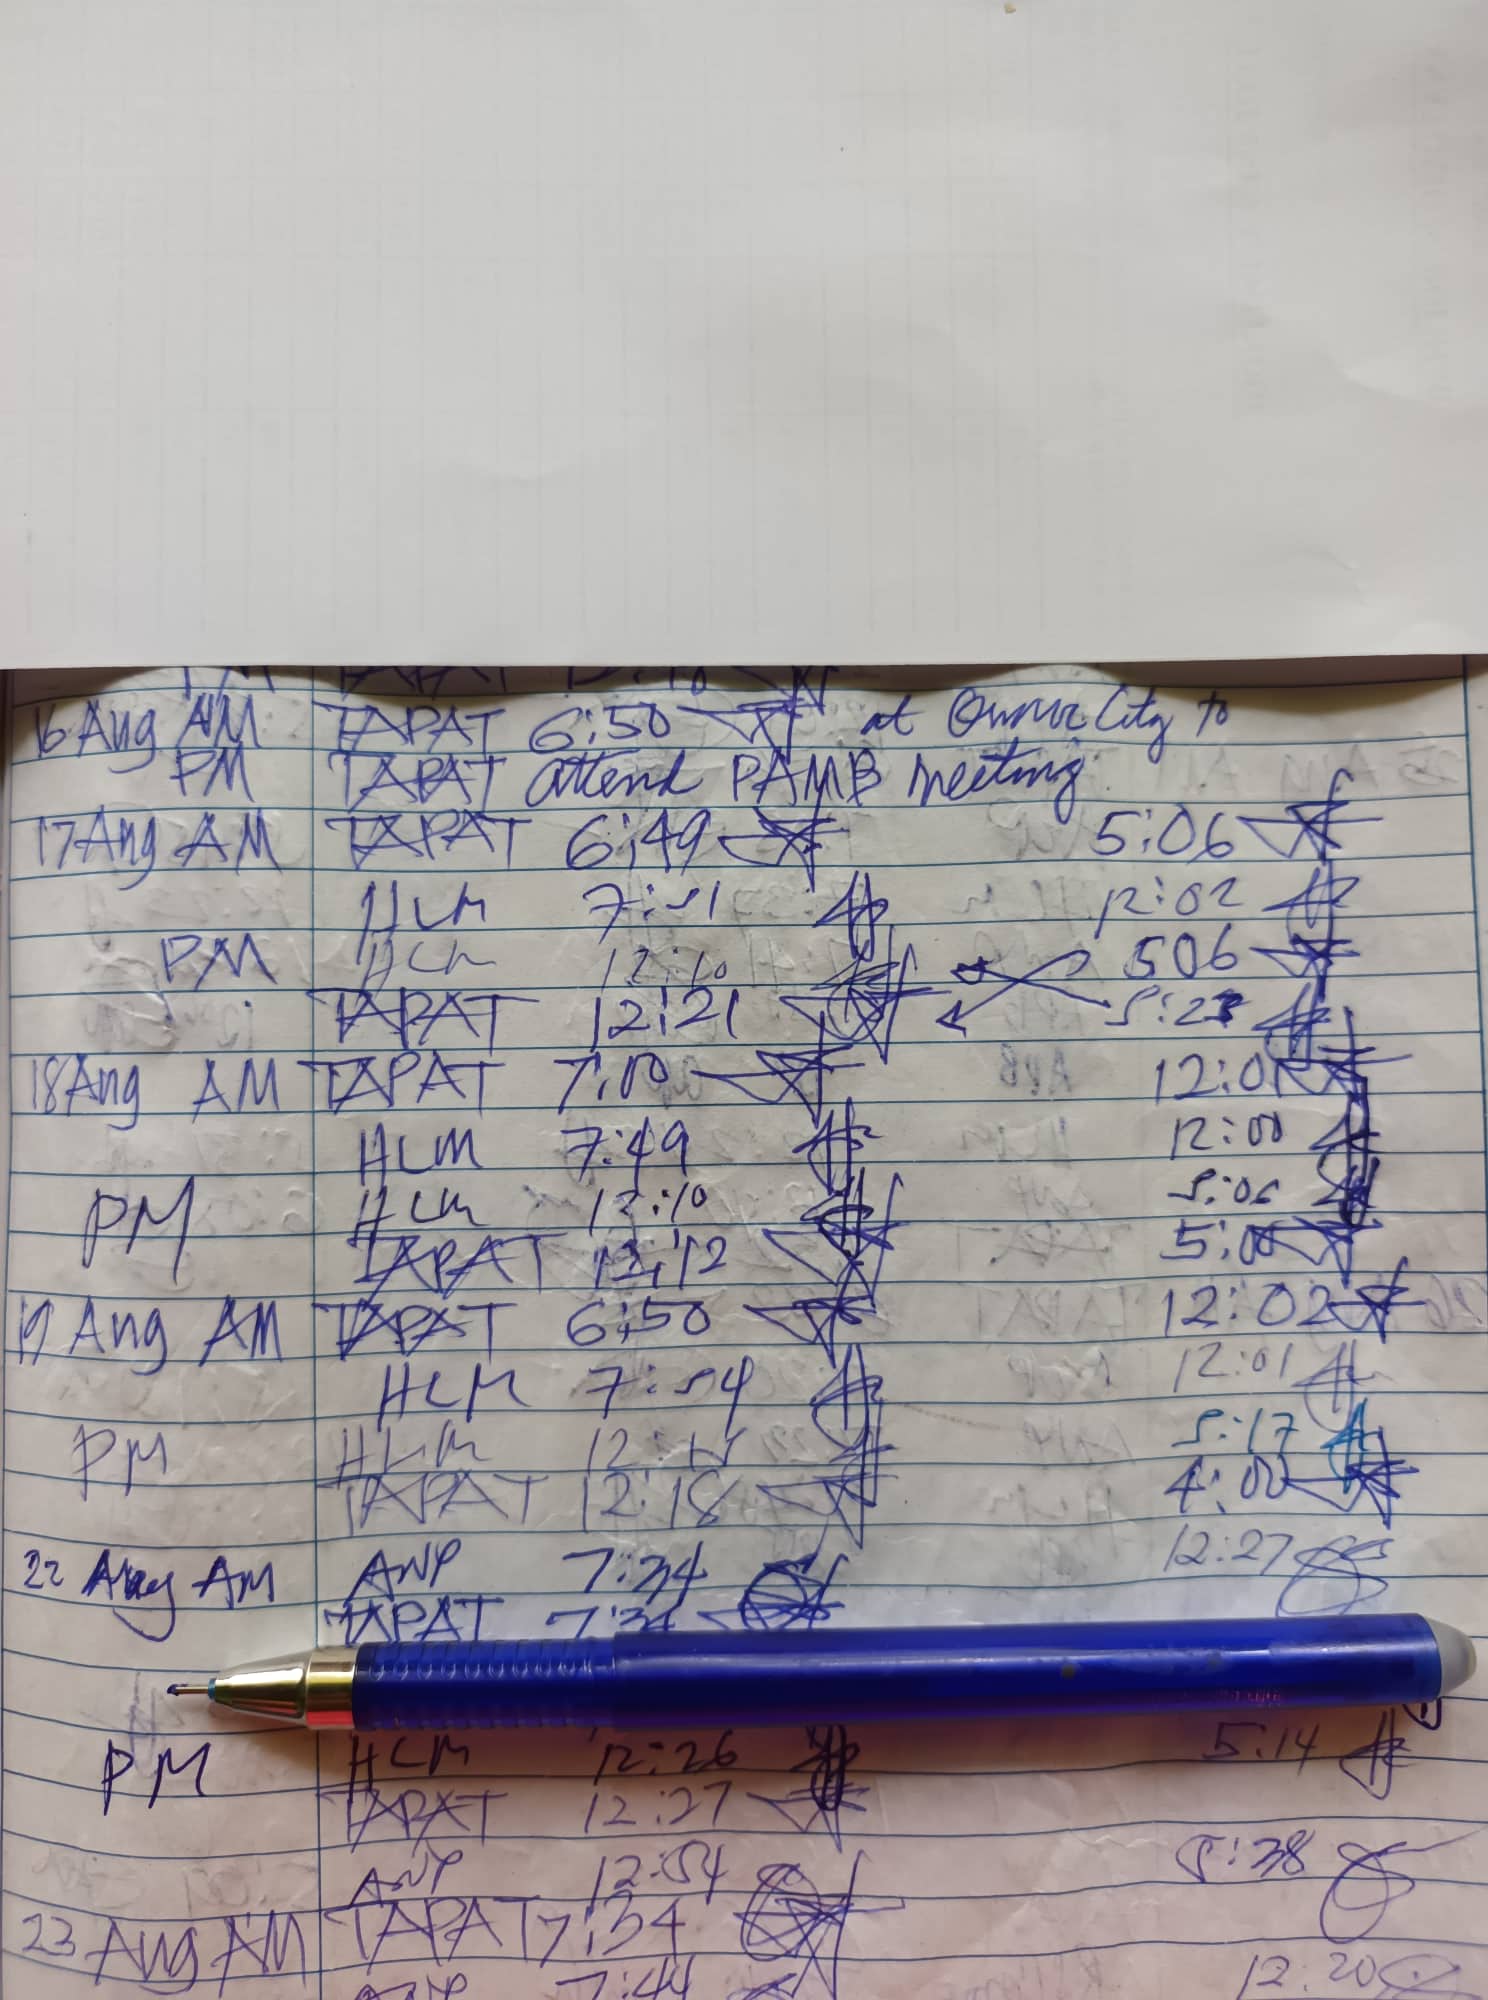 16 Aug AM TAPAT 6:50 at Ormoc City to
PM TAPAT attend PAMB meeting
17 Aug AM TAPAT 6:49 5:06
HLM 7:51 12:02
PM HLM 12:10 506
TAPAT 12:21 5:23
18 Aug AM TAPAT 7:00 12:01
HLM 7:49 12:00
PM HLM 12:10 5:06
TAPAT 12:12 5:00
19 Aug AM TAPAT 6:50 12:02
HLM 7:54 12:01
PM HLM 5:17
TAPAT 12:18 4:00
22 Aug AM ANP 7:34 12:27
TAPAT 7:34
PM HLM 12:26 5:14
TAPAT 12:27
ANP 12:54 5:38
23 Aug AM TAPAT 7:34
ANP 7:44 12:20